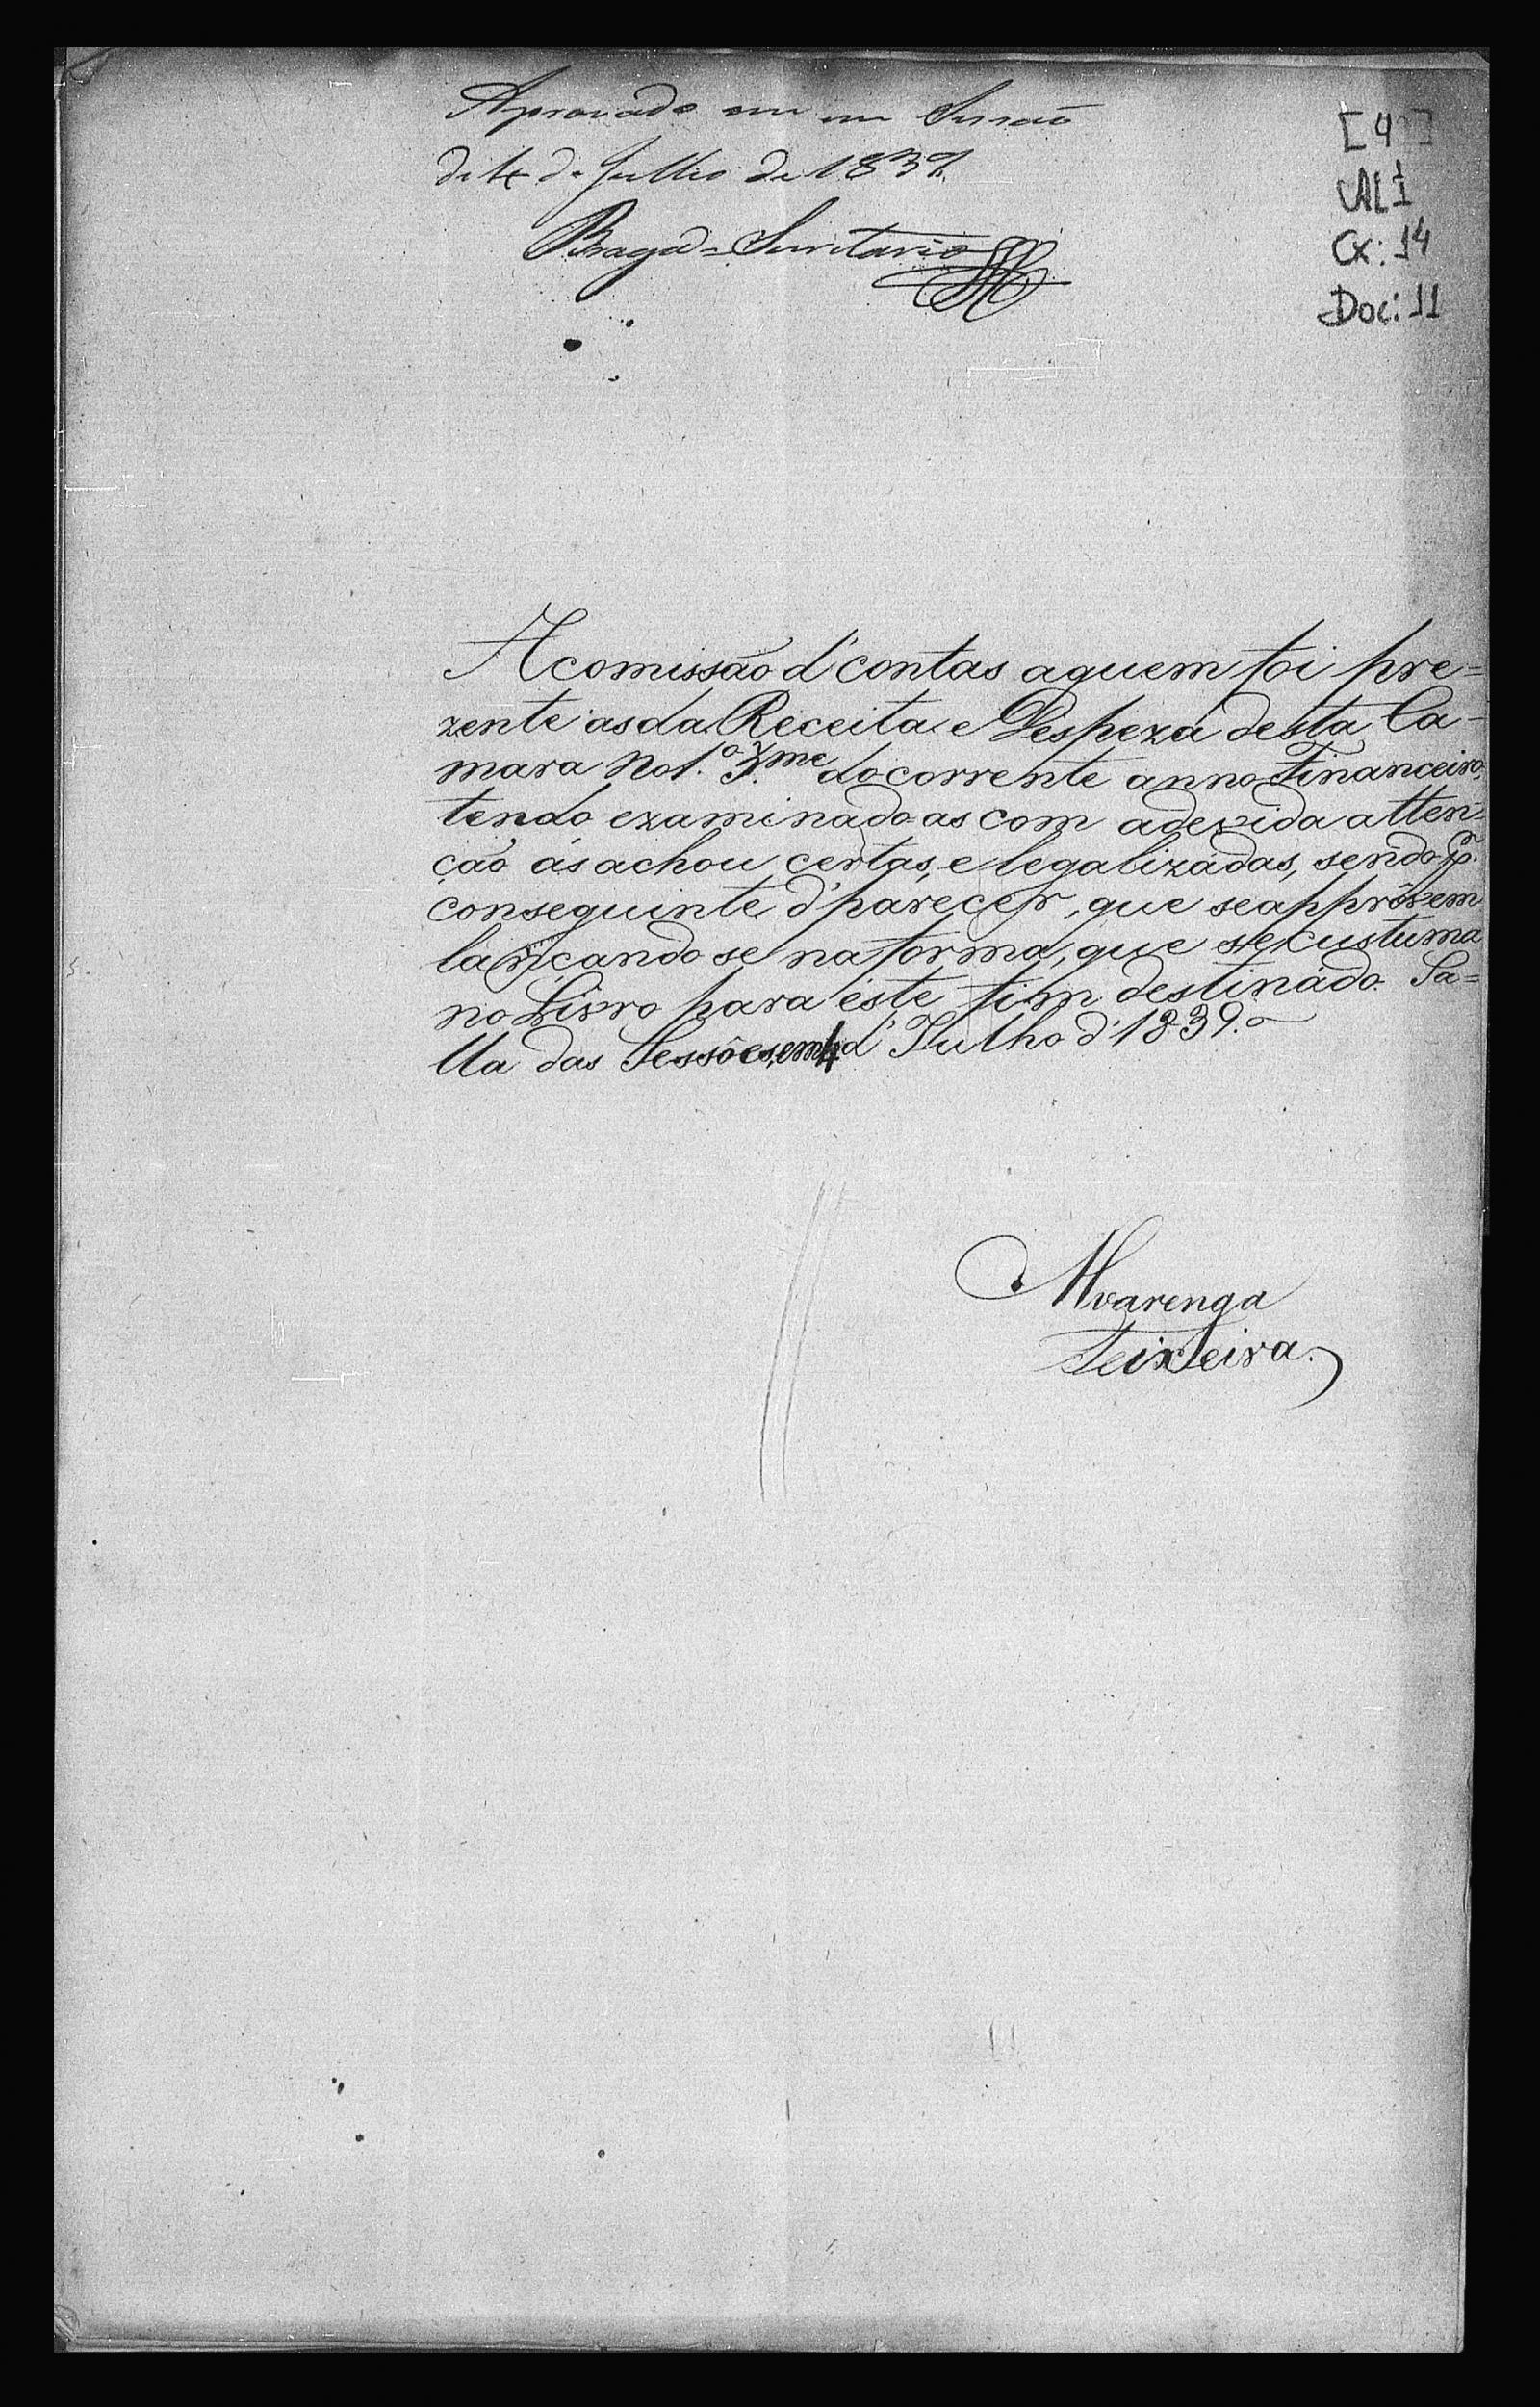 Aprovado em Sessaõ
de 4 de Julho de 1839
Braga = Secretario
[4]
AL1
Cx: 14
Doc: 11
A comissão d'contas aquem foi pre=
zente as da Receita e Despeza desta Ca-
mara No 1.º 3.me do corrente anno Financeiro,
tendo examinado as com adevida atten=
ção ás achou certas, e legalizadas, sendo p.r
conseguinte d'parecer, que seapprovem
lançando se na forma, que se custuma
no Livro para este fim destinado. Sa=
lla das Sessões, em 4 d'Julho d'1839.
Alvarenga
Teixeira.